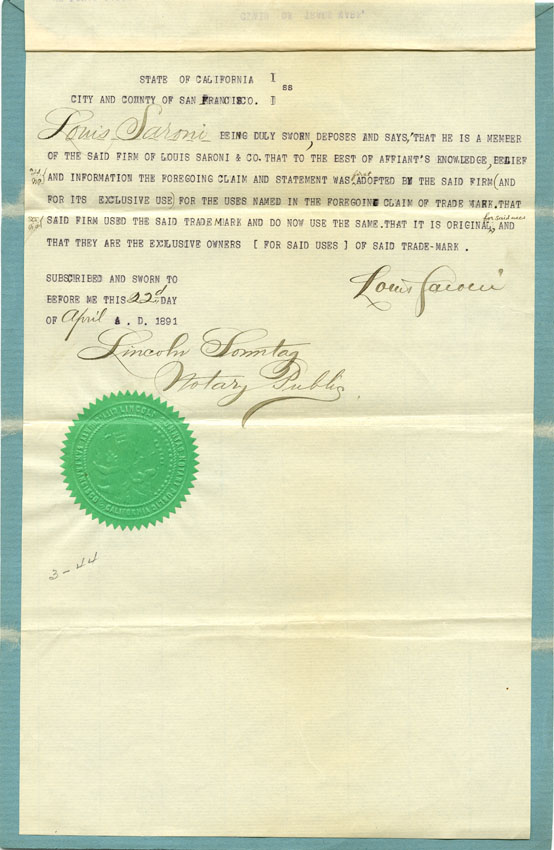 STATE OF CALIFORNIA I
SS
CITY AND COUNTY OF SAN FRANCISCO. I
Louis Saroni BEING DULY SWORN, DEPOSES AND SAYS, THAT HE IS A MEMBER
OF THE SAID FIRM OF LOUIS SARONI & CO. THAT TO THE BEST OF AFFIANT'S KNOWLEDGE, BELIEF
AND INFORMATION THE FOREGOING CLAIM AND STATEMENT WAS first ADOPTED BY THE SAID FIRM (AND
FOR ITS EXCLUSIVE USE) FOR THE USES NAMED IN THE FOREGOING CLAIM OF TRADE MARK. THAT
SAID FIRM USED THE SAID TRADE MARK AND DO NOW USE THE SAME. THAT IT IS ORIGINAL, for said uses AND
THAT THEY ARE THE EXCLUSIVE OWNERS [ FOR SAID USES ] OF SAID TRADE-MARK .
SUBSCRIBED AND SWORN TO
Louis Saroni
BEFORE ME THIS 22d DAY
OF April A . D. 1891
Lincoln Sonntag
Notary Public.
LINCOLN
NOTARY
CALIFORNIA
3-44